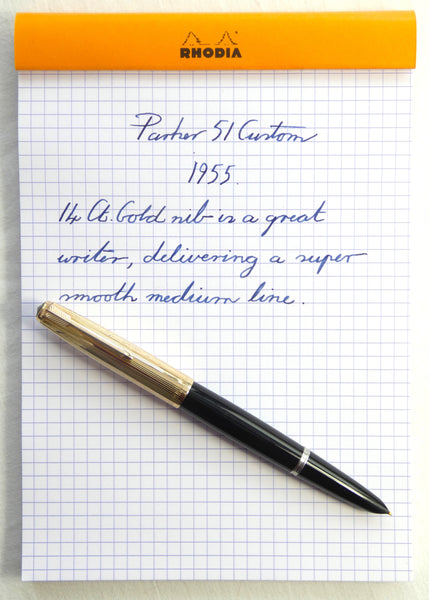 RHODIA
Parker 51 Custom
1955.
14 Ct. Gold nib is a great
writer, delivering a super
smooth medium line.